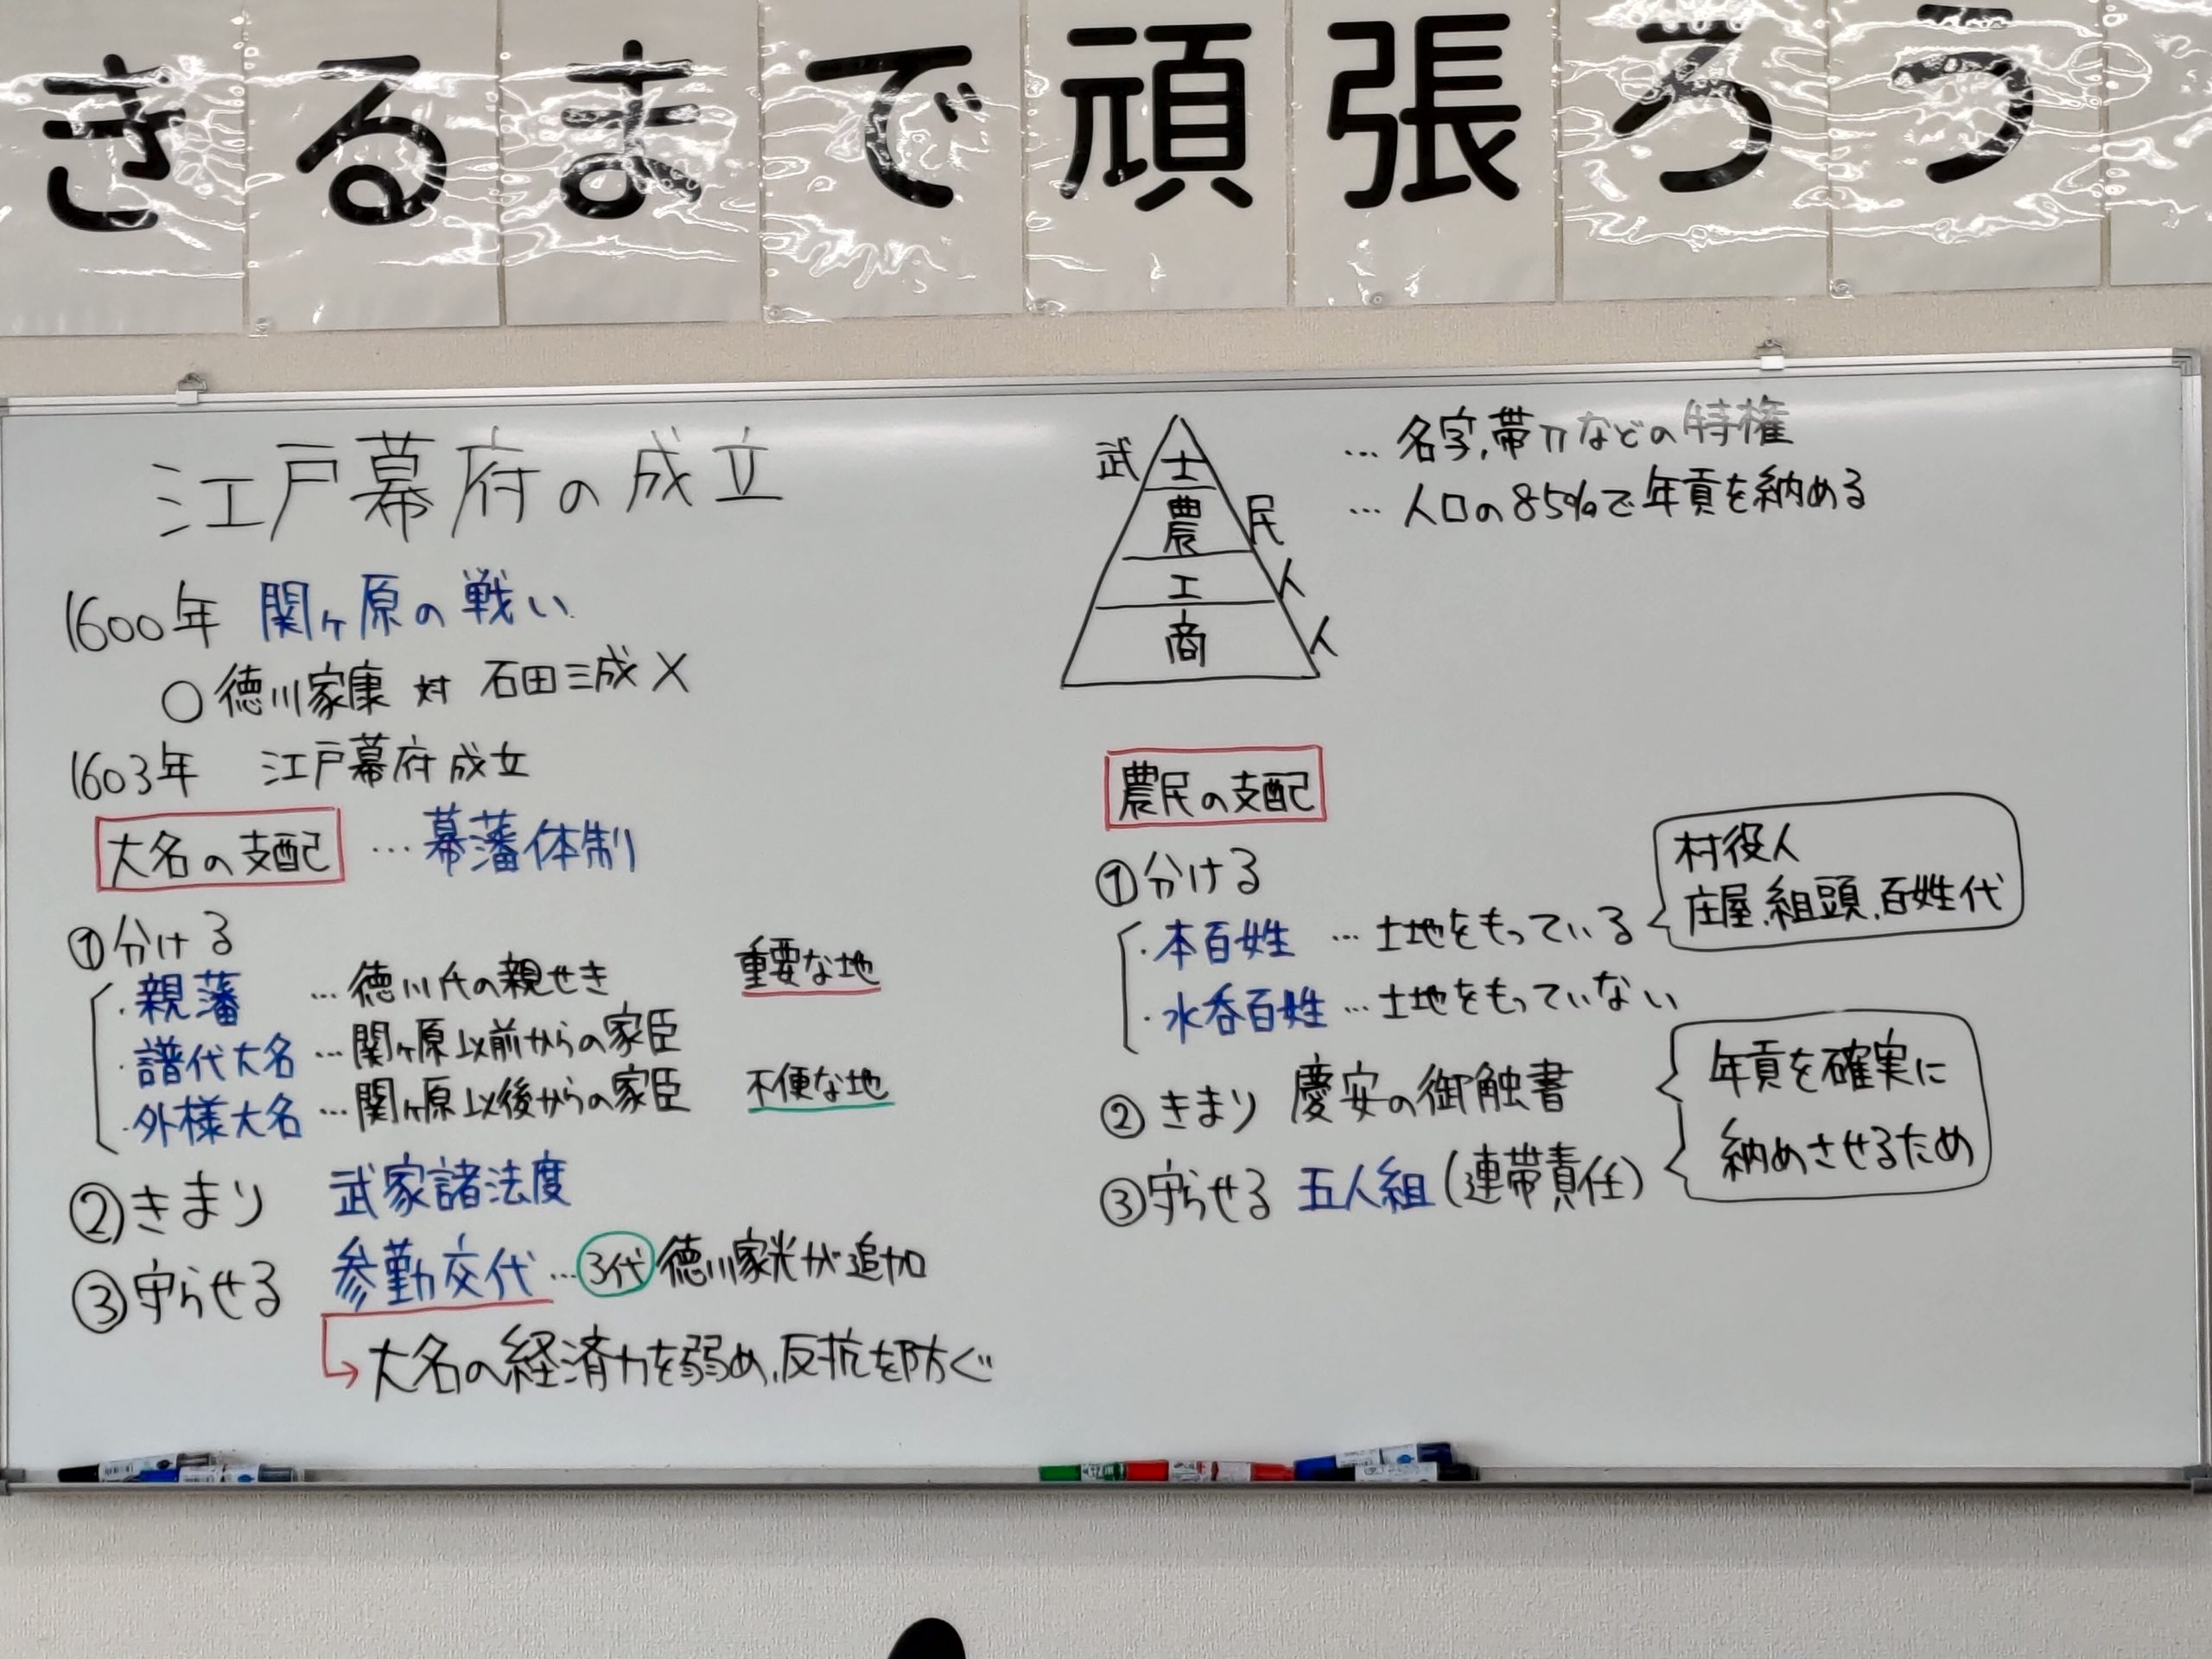 きるまで頑張ろう
江戸幕府の成立
1600年 関ヶ原の戦い
○徳川家康 対 石田三成 ×
1603年 江戸幕府成立
大名の支配 … 幕藩体制
①分ける
・親藩 … 徳川氏の親せき 重要な地
・譜代大名 … 関ヶ原以前からの家臣
・外様大名 … 関ヶ原以後からの家臣 不便な地
②きまり 武家諸法度
③守らせる 参勤交代 … 3代 徳川家光が追加
大名の経済力を弱め、反抗を防ぐ
武士 … 名字、帯刀などの特権
農民 … 人口の85%で年貢を納める
工人
商人
農民の支配
①分ける
・本百姓 … 土地をもっている
村役人
庄屋、組頭、百姓代
・水呑百姓 … 土地をもっていない
②きまり 慶安の御触書
③守らせる 五人組(連帯責任)
年貢を確実に
納めさせるため